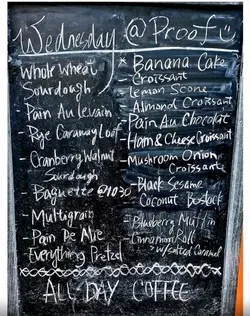 Wednesday @ Proof
Whole Wheat
Sourdough
- Pain Au Levain
- Rye Caraway Loaf
- Cranberry Walnut
Sourdough
- Baguette @1030
- Multigrain
- Pain De Mie
- Everything Pretzel
* Banana Cake
- Croissant
- Lemon Scone
- Almond Croissant
- Pain Au Chocolat
- Ham & Cheese Croissant
- Mushroom Onion
Croissante
- Black Sesame
Coconut Bostock
- Blueberry Muffin
- Cinnamon Roll
w/ Salted Caramel
ALL DAY COFFEE